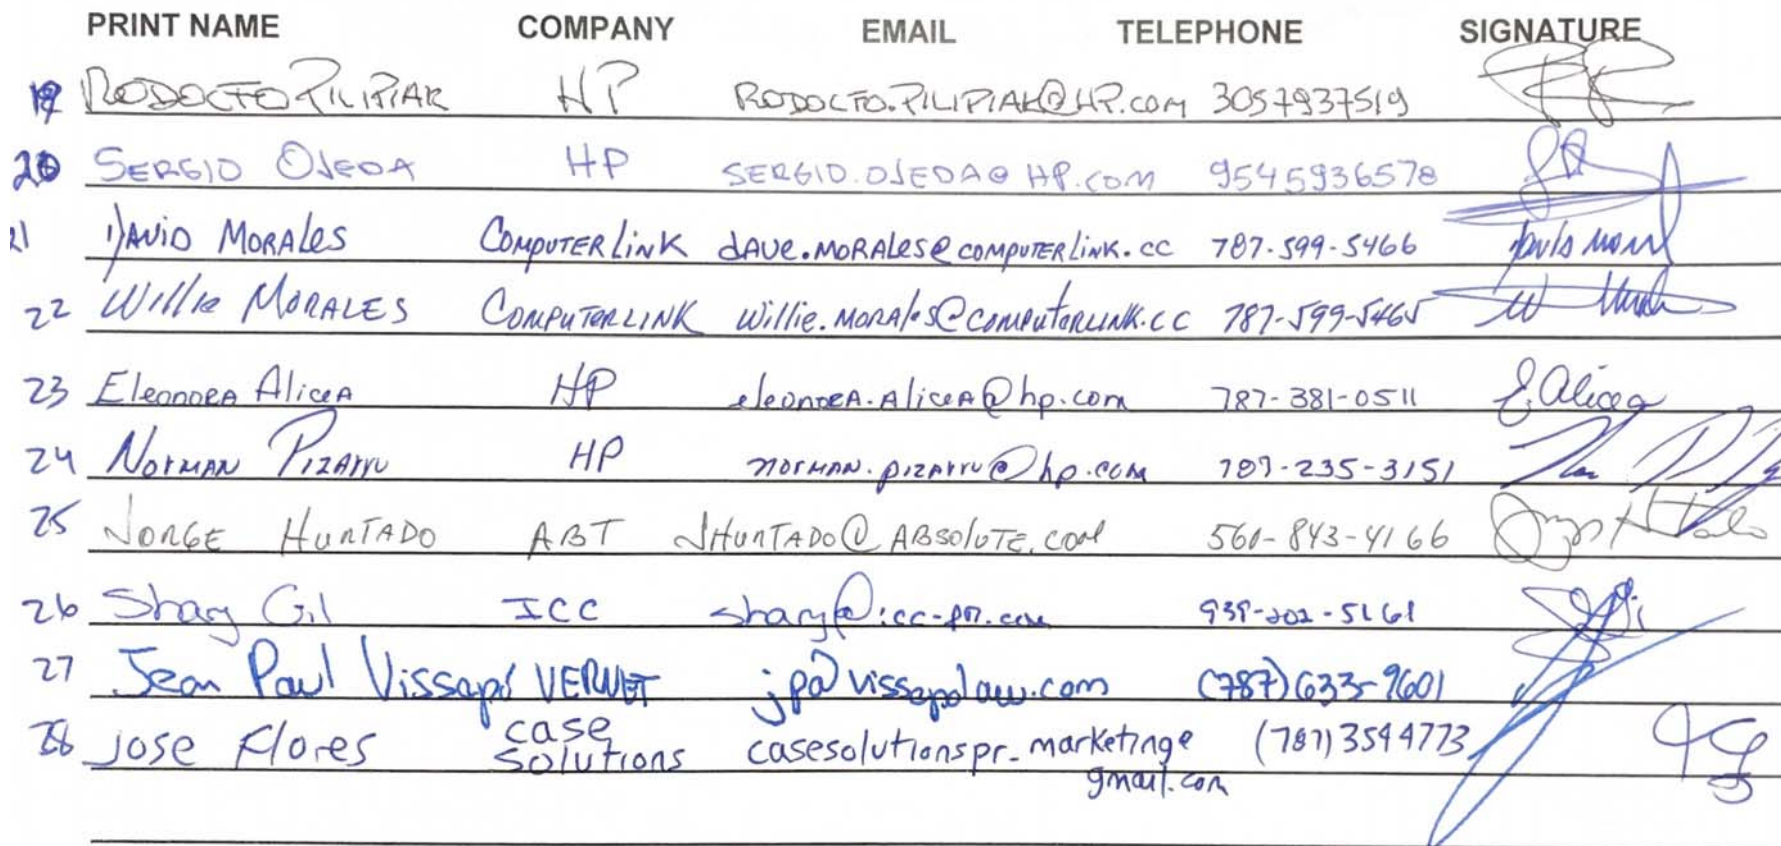 PRINT NAME COMPANY EMAIL TELEPHONE SIGNATURE
19 RODOLFO PILIPIAK HP RODOLFO.PILIPIAK@HP.COM 3057937519
20 SERGIO OJEDA HP SERGIO.OJEDA@HP.COM 9545936578
21 DAVID MORALES COMPUTERLINK dAVE.MORALES@COMPUTERLINK.CC 787-599-5466
22 Willie MORALES COMPUTERLINK Willie.MORALES@COMPUTERLINK.CC 787-599-5465
23 Eleonora Alicea HP eleonora.Alicea@hp.com 787-381-0511 E. Alicea
24 Norman Pizarro HP norman.pizarro@hp.com 787-235-3151
25 JORGE HURTADO ABT JHURTADO@ABSOLUTE.COM 561-843-4166
26 Shary Gil ICC shary@icc-pr.com 939-202-5161
27 Jean Paul Vissepó VERNET jp@vissepolaw.com (787)633-9601
28 Jose Flores case solutions casesolutionspr_marketing@ (787)3544773
gmail.com